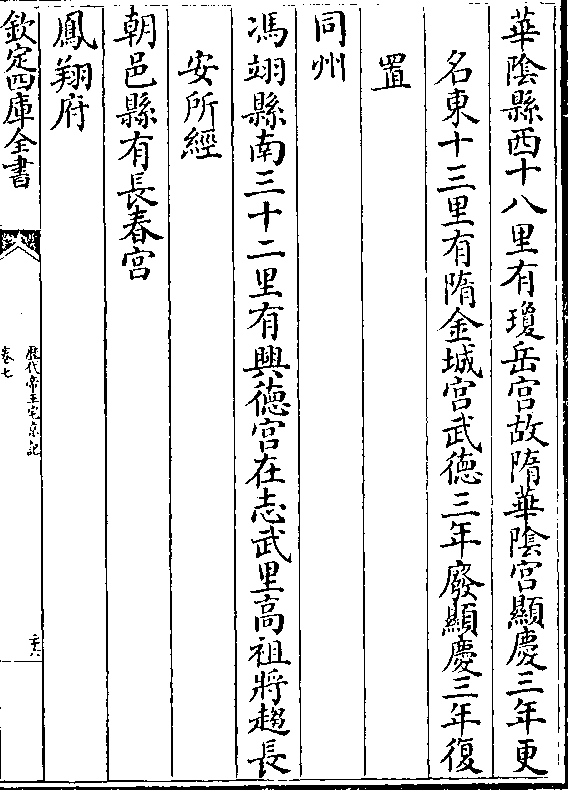 華隂縣西十八里有瓊岳宫故隋華隂宫顯慶三年更
名東十三里有隋金城宫武徳三年廢顯慶三年復
置
同州
馮翊縣南三十二里有興徳宫在志武里高祖將趨長
安所經
朝邑縣有長春宫
鳳翔府
欽定四庫全書
歷代帝王宅京記
卷七